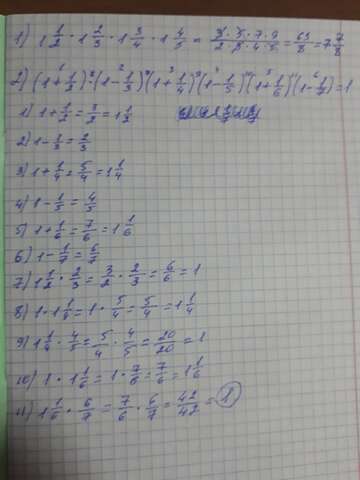 1) 1 1/2 · 1 2/3 · 1 3/4 · 1 4/5 = 3·5·7·9/2·3·4·5 = 63/8 = 7 7/8
2) (1+1/2)·(1-1/3)·(1+1/4)·(1-1/5)·(1+1/6)·(1-1/7)=1
1) 1+1/2=3/2=1 1/2
2) 1-1/3=2/3
3) 1+1/4=5/4=1 1/4
4) 1-1/5=4/5
5) 1+1/6=7/6=1 1/6
6) 1-1/7=6/7
7) 1 1/2·2/3=3/2·2/3=6/6=1
8) 1·1 1/4=1·5/4=5/4=1 1/4
9) 1 1/4·4/5=5/4·4/5=20/20=1
10) 1·1 1/6=1·7/6=7/6=1 1/6
11) 1 1/6·6/7=7/6·6/7=42/42=1